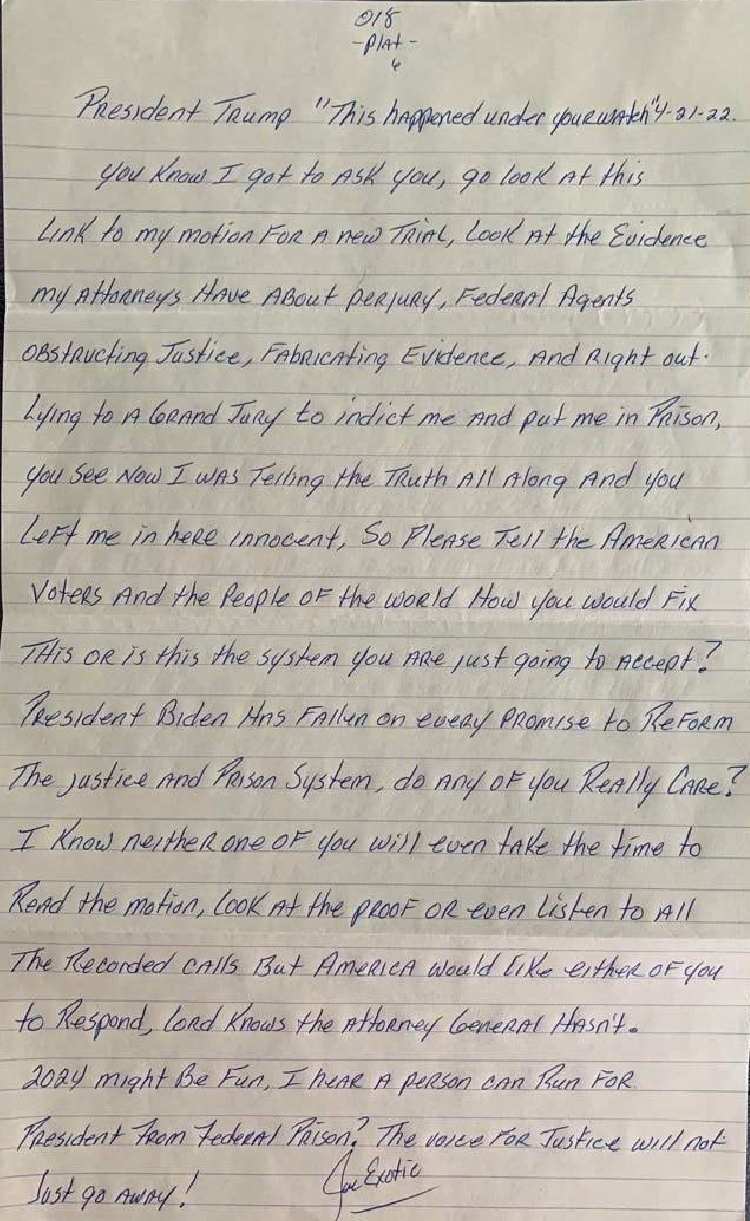 018
-Plat-
4
President Trump "This happened under your watch" 4-21-22.
you know I got to ask you, go look at this
Link to my motion for a new Trial, Look at the Evidence
my Attorneys Have About perjury, Federal Agents
Obstructing Justice, Fabricating Evidence, and Right out
Lying to a Grand Jury to indict me and put me in Prison,
you see now I was Telling the Truth All Along and you
Left me in here innocent, So Please Tell the American
Voters and the People of the world How you would Fix
This or is this the system you are just going to accept?
President Biden Has Fallen on every promise to Reform
The justice and Prison System, do any of you Really Care?
I know neither one of you will even take the time to
Read the motion, Look at the proof or even Listen to all
The Recorded calls But America would like either of you
to Respond, Lord knows the Attorney General Hasn't.
2024 might Be Fun, I hear a person can Run For
President From Federal Prison? The voice For Justice will not
Just go away! Joe Exotic